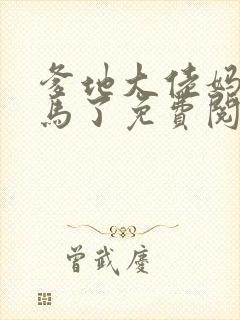 爹地大佬妈
马了免费阅
曾武庆